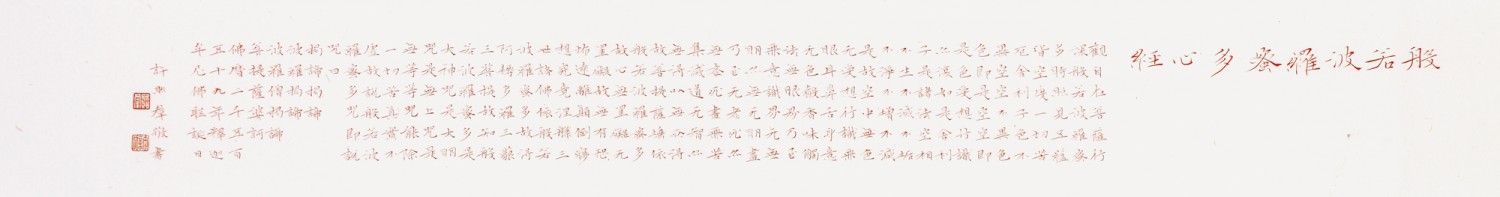 般若波羅蜜多心經
觀自在菩薩行
深般若波羅蜜
多時照見五蘊
皆空度一切苦
厄舍利子色不
異空空不異色
色即是空空即
是色受想行識
亦復如是舍利
子是諸法空相
不生不滅不垢
不淨不增不減
是故空中無色
无受想行識無
眼耳鼻舌身意
无色聲香味觸
法無眼界乃至
無意識界无無
明亦无無明盡
乃至无老死亦
無老死盡無苦
集滅道无智亦
無得以無所得
故菩提薩埵依
般若波羅蜜多
故心無罣礙无
罣礙故無有恐
怖遠離顛倒夢
想究竟涅槃三
世諸佛依般若
波羅蜜多故得
阿耨多羅三藐
三菩提故知般
若波羅蜜多是
大神咒是大明
咒是無上咒是
無等等咒能除
一切苦真實不
虛故說般若波
羅蜜多咒即說
咒曰
揭諦揭諦
波羅揭諦
波羅僧揭諦
菩提薩婆訶
佛曆二千五百
五十九年釋迦
牟尼佛聖誕日
許群敬書